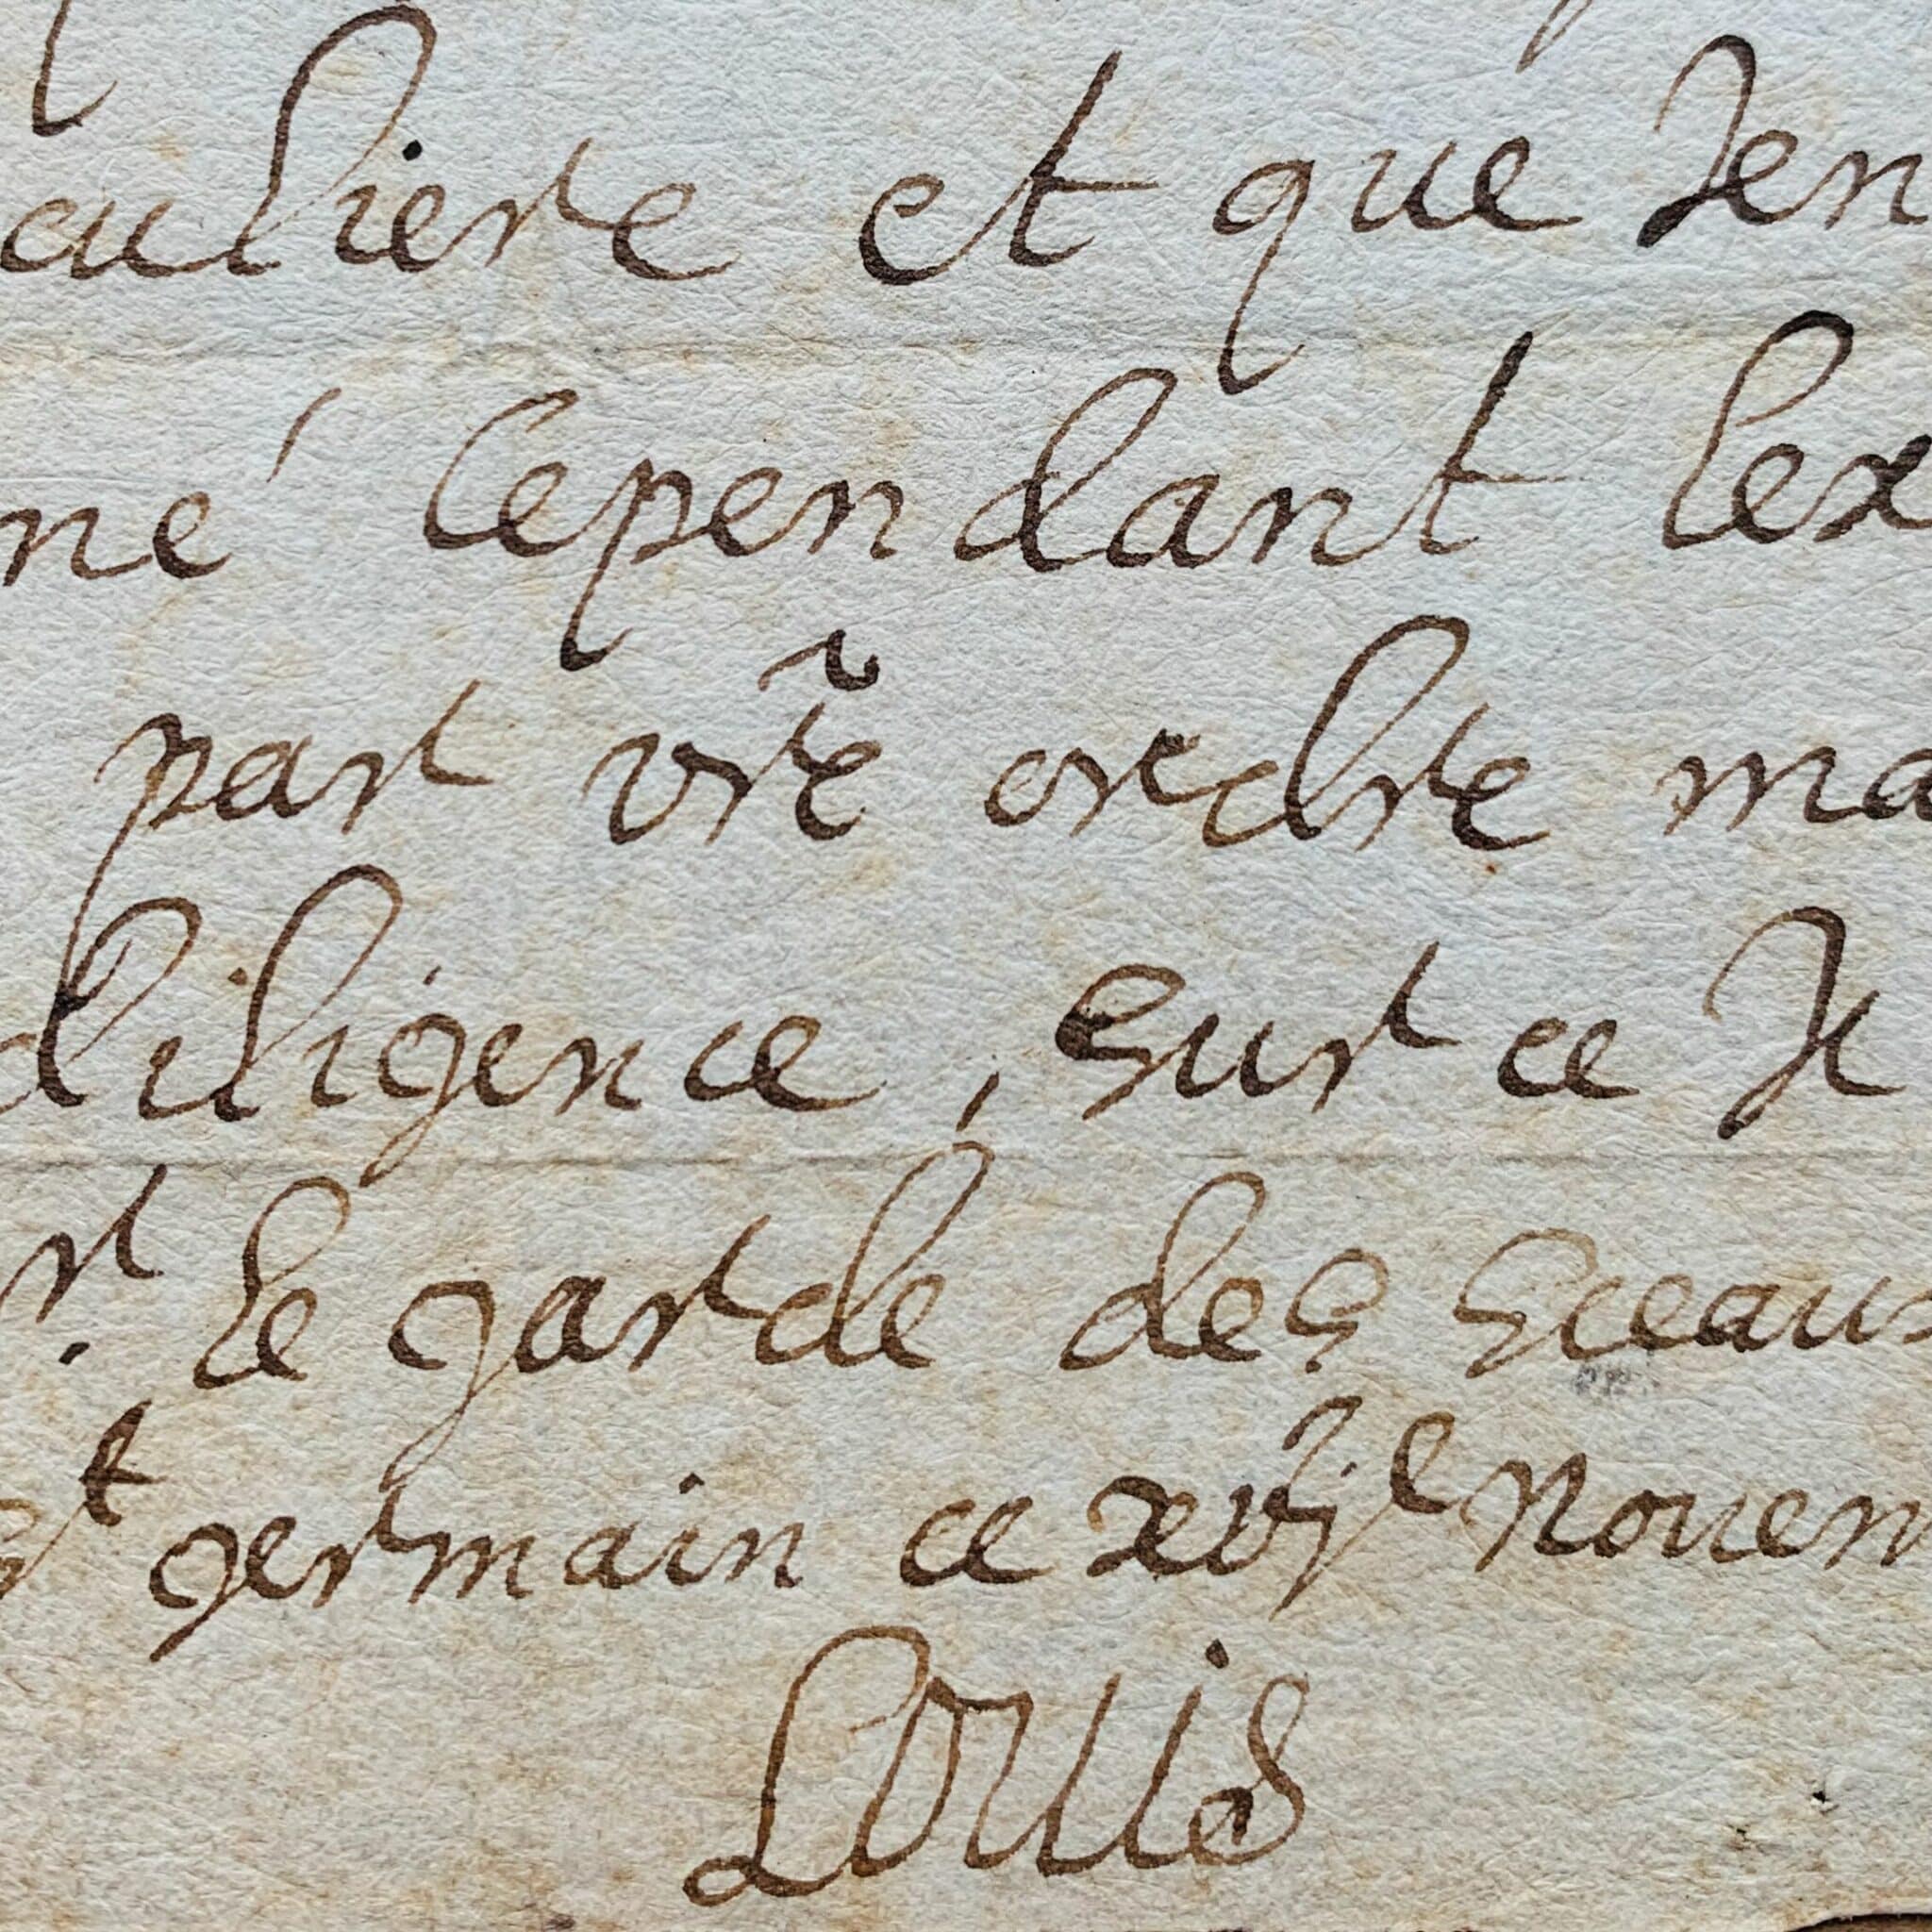 culiere et que Jen
né Cependant lex
par vr̃e ordre ma
diligence, sur ce Je
r. le garde des sceaux
st germain ce xvije Nouem
Louis